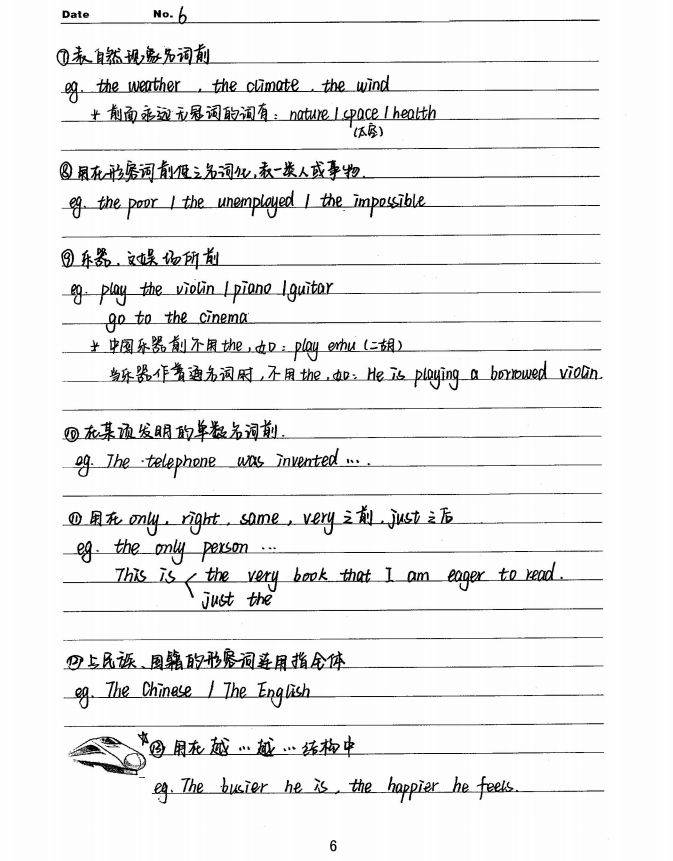 Date No. 6
⑦表自然现象名词前
eg. the weather , the climate . the wind
* 前面永远无冠词的词有: nature / space / health
(太空)
⑧用在形容词前使之名词化,表一类人或事物.
eg. the poor / the unemployed / the impossible
⑨乐器、文娱场所前
eg. play the violin / piano / guitar
go to the cinema
* 中国乐器前不用the,如: play erhu (二胡)
当乐器作普通名词时,不用the,如: He is playing a borrowed violin.
⑩在某项发明的单数名词前.
eg. The telephone was invented ....
⑪用在 only, right, same, very之前, just之后
eg. the only person ...
This is < the very book that I am eager to read.
just the
⑫与民族、国籍的形容词连用指全体
eg. The Chinese / The English
☆⑬用在越…越…结构中
eg. The busier he is, the happier he feels.
6